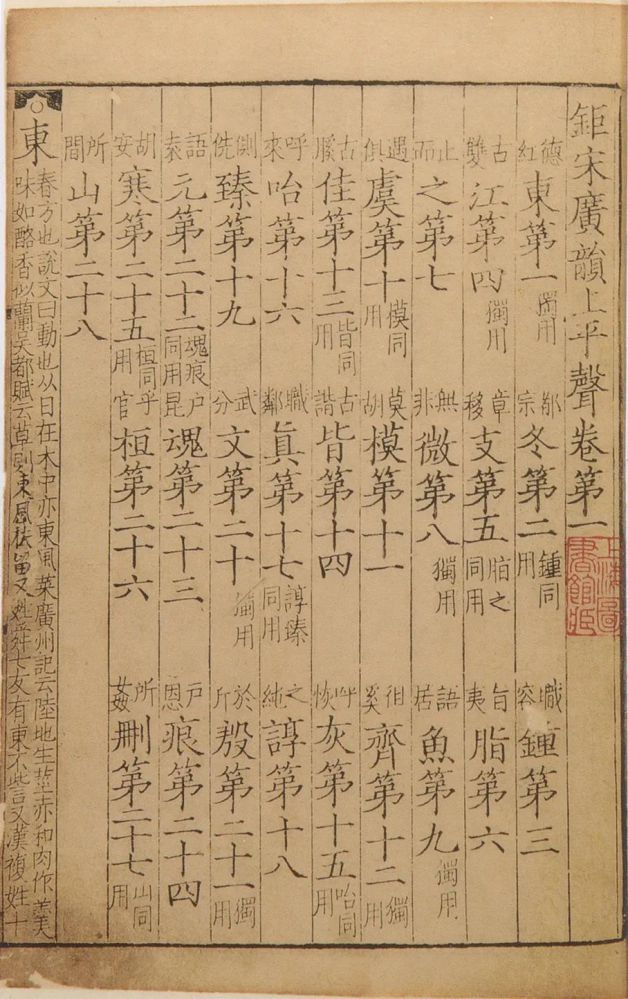 鉅宋廣韻上平聲卷第一
德紅東第一獨用 都宗冬第二鍾同用 職容鍾第三
古雙江第四獨用 章移支第五脂之同用 旨夷脂第六
止而之第七 無非微第八獨用 語居魚第九獨用
遇俱虞第十模同用 莫胡模第十一 徂奚齊第十二獨用
古膎佳第十三皆同用 古諧皆第十四 呼恢灰第十五咍同用
呼來咍第十六 職鄰眞第十七諄臻同用 之純諄第十八
側侁臻第十九 武分文第二十獨用 於斤殷第二十一獨用
語袁元第二十二魂痕同用 户昆魂第二十三 户恩痕第二十四
胡安寒第二十五桓同用 乎官桓第二十六 所姦刪第二十七山同用
所間山第二十八
東
春方也說文曰動也从日在木中亦東風菜廣州記云陸地生莖赤和肉作羹
味如酪香似蘭吳都賦云草則東風扶留又姓舜七友有東不訾又漢複姓十
上海圖書館藏